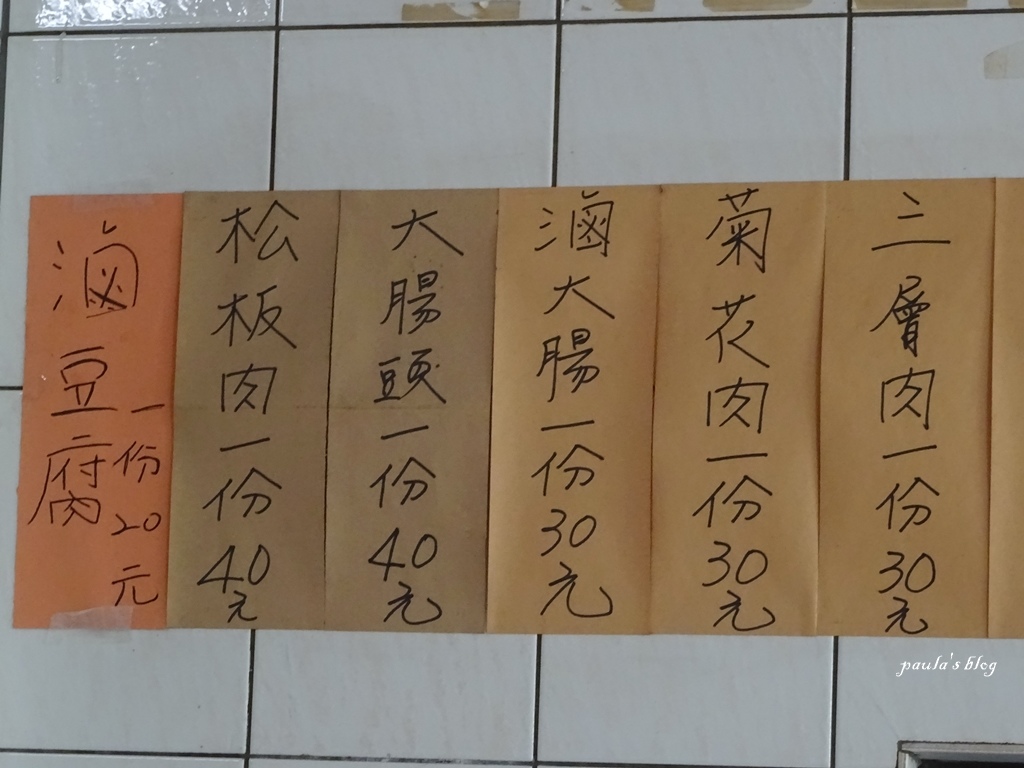 三層肉一份30元
菊花肉一份30元
滷大腸一份30元
大腸頭一份40元
松板肉一份40元
滷豆腐
一份20元
paula's blog